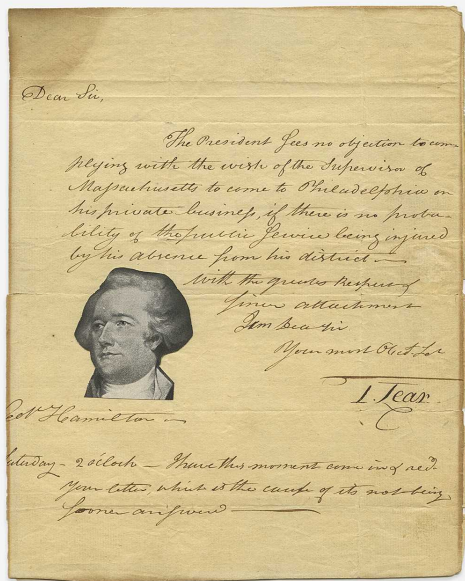 Dear Sir,
The President sees no objection to com-
plying with the wish of the Supervisor of
Massachusetts to come to Philadelphia on
his private business, if there is no proba-
bility of the public Service being injured
by his absence from his district.—
With the greatest Respect &
sincere attachment
I am Dear Sir
Your most Obed. Set
T. Lear.
Colo. Hamilton—
Saturday— 2 o'clock— I have this moment come in & recd.
your letter, which is the cause of its not being
sooner answered———